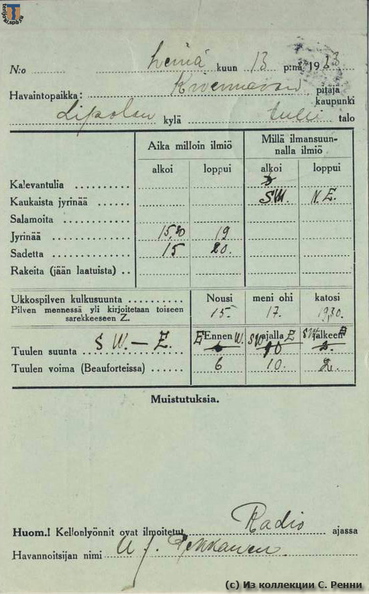 N:o Heinä kuun 13 p:nä 1923
Havaintopaikka: Kivennavan pitäjä
kaupunki
Lipolan kylä tulli talo
Aika milloin ilmiö Millä ilmansuunnalla ilmiö
alkoi loppui alkoi loppui
Kalevantulia
Kaukaista jyrinää SW. N.E.
Salamoita
Jyrinää 15,20 19
Sadetta 15 20.
Rakeita (jään laatuista)
Ukkospilven kulkusuunta Nousi meni ohi katosi
Pilven mennessä yli kirjoitetaan toiseen sarekkeeseen Z. 15. 17. 19,30.
SW.—Z. Ennen ajalla Jälkeen
Tuulen suunta
Tuulen voima (Beauforteissa) 6 10. 2.
Muistutuksia.
Huom.! Kellonlyönnit ovat ilmoitetut Radio ajassa
Havannoitsijan nimi A. J. Pekkanen.
(c) Из коллекции С. Ренни